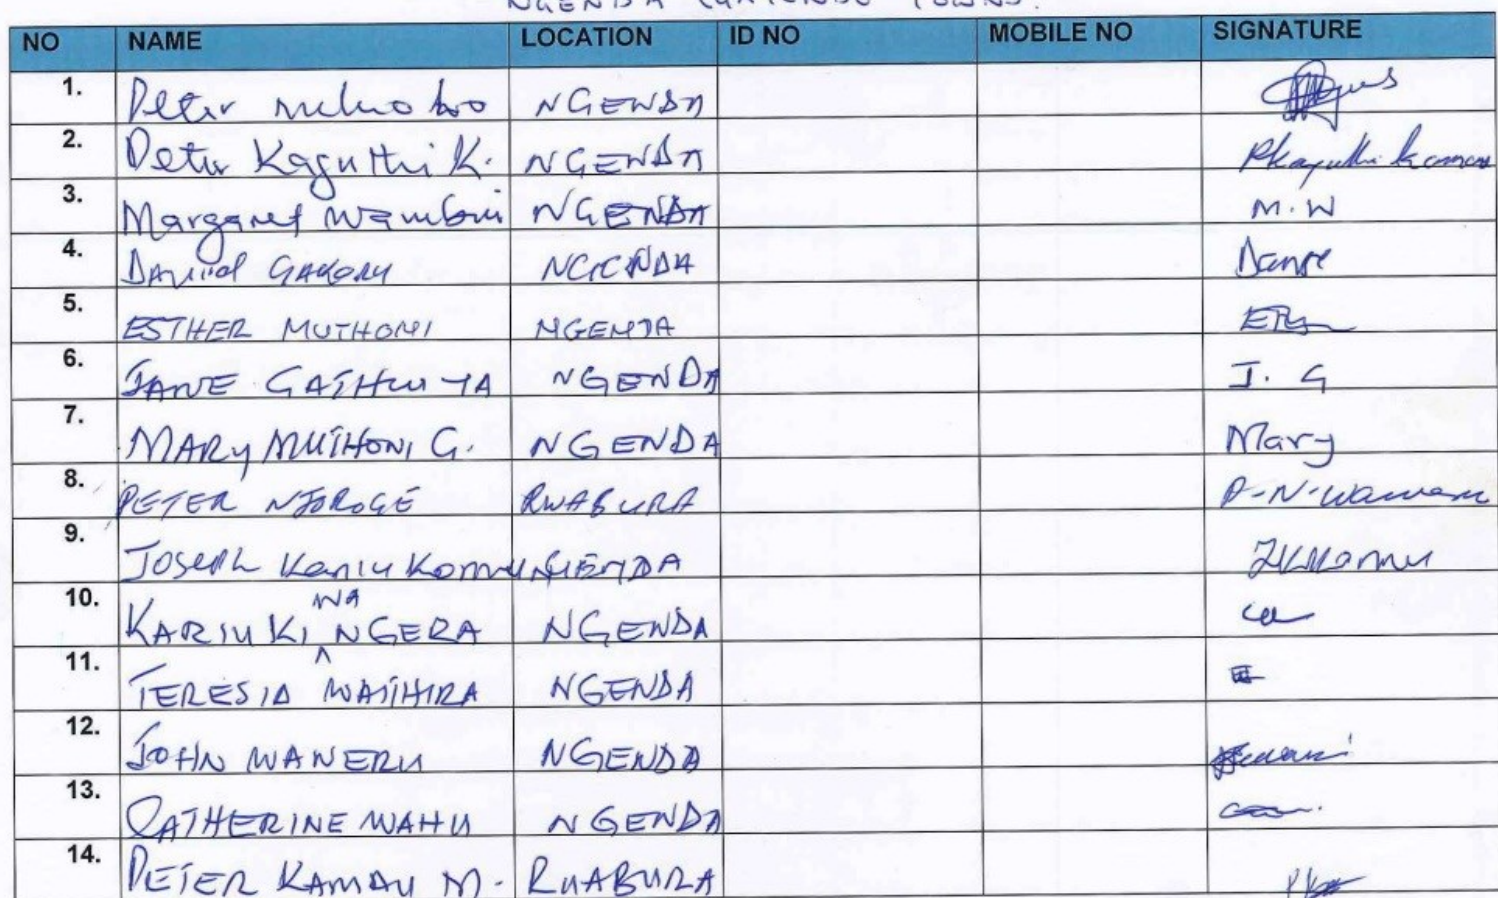 NGENDA
NO NAME LOCATION ID NO MOBILE NO SIGNATURE
1. Peter NGENDA
2. Peter Kaguthi K. NGENDA Pkaguthi Kamau
3. Margaret Wambui NGENDA M.W
4. Daniel GAKORU NGENDA
5. ESTHER MUTHONI NGENDA
6. JANE GATHUYA NGENDA J. G
7. MARY MUTHONI G. NGENDA Mary
8. PETER NJOROGE RWABURA P-N-
9. JOSEPH Kaniu NGENDA
10. KARIUKI WA NGERA NGENDA
11. TERESIA WAITHIRA NGENDA
12. JOHN WANERU NGENDA
13. CATHERINE WAHU NGENDA
14. PETER KAMAU M. RUABURA